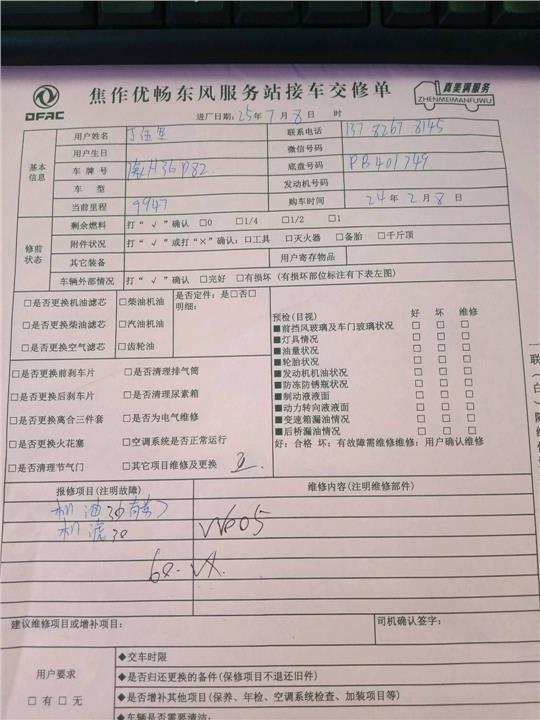 DFAC
焦作优畅东风服务站接车交修单
真美满服务
ZHENMEIMANFUWU
进厂日期: 25年 7月 8日 时
基本信息
用户姓名
联系电话 137 8267 8145
用户生日
微信号码
车牌号 H36P82
底盘号码 PB401749
车型
发动机号码
当前里程 9947
购车时间 24年 2月 8日
修前状态
剩余燃料 打“√”确认 □0 □1/4 □1/2 □1
附件状况 打“√”或打“×”确认: □工具 □灭火器 □备胎 □千斤顶
其它装备
用户寄存物品
车辆外部情况 打“√”确认 □完好 □有损坏 (有损坏部位标注有下表左图)
□是否更换机油滤芯 □柴油机油 是否定件: 是□否□
明细:
□是否更换柴油滤芯 □汽油机油
□是否更换空气滤芯 □齿轮油
预检(目视) 好 坏 维修
■前挡风玻璃及车门玻璃状况 □ □ □
■灯具情况 □ □ □
■油量状况 □ □ □
■轮胎状况 □ □ □
■发动机机油状况 □ □ □
■防冻防锈瓶状况 □ □ □
■制动液液面 □ □ □
■动力转向液液面 □ □ □
■变速箱漏油情况 □ □ □
■后桥漏油情况 □ □ □
好: 合格 坏: 有故障需维修维修: 用户确认维修
□是否更换前刹车片 □是否清理排气筒
□是否更换后刹车片 □是否清理尿素箱
□是否更换离合三件套 □是否为电气维修
□是否更换火花塞 □空调系统是否正常运行
□是否清理节气门 □其它项目维修及更换
报修项目(注明故障)
维修内容(注明维修部件)
机油30
机滤30
建议维修项目或增补项目:
司机确认签字:
用户要求
□有 □无
◆交车时限
◆是否归还更换的备件(保修项目不退还旧件)
◆是否增补其他项目(保养、年检、空调系统检查、加装项目等)
◆车辆是否需要清洁: